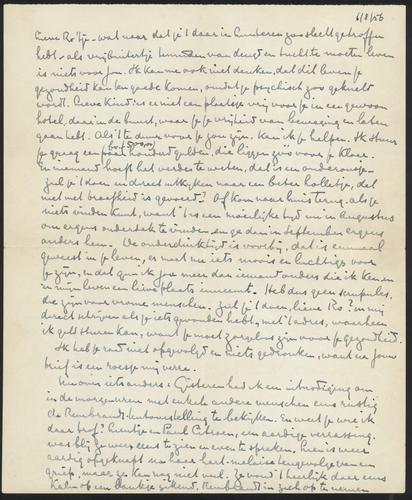 6/8/56
Lieve Ro'tje - wat naar dat je 't daar in Lunteren zoo slecht getroffen
hebt - als vrijbuitertje temidden van deugd en tucht te moeten leven
is niets voor jou. Ik kan me ook niet denken, dat dit leven je
gezondheid kan ten goede komen, omdat je psychisch zoo gekweld
wordt. Lieve kind: is er niet een plaatsje vrij voor je in een gewoon
hotel, daar in de buurt, waar je je vrijheid van beweging en laten
gaan hebt. Als 't te duur voor je zou zijn. Kan ik je helpen. Ik stuur
je graag een paar honderd gulden, die liggen zóó voor je klaar.
En niemand hoeft het verder te weten, dat is en onderonsje.
Zul je 't doen en direct uitkijken naar een beter hotelletje, dat
niet met braafheid is gevoerd? Of kom naar huis terug, als je
niets vinden kunt, want 't is een moeilijke tijd nu in Augustus
om ergens onderdak te vinden, en ga dan in September ergens
anders heen. De onderduiktijd is voorbij, dat is eenmaal
geweest in je leven, er moet nu iets moois en luchtigs voor
je zijn, en dat gun ik jou meer dan iemand anders die ik ken en
in mijn leven een lieve plaats inneemt. Heb dus geen scrupules,
die zijn voor vrome menschen. Zul je 't doen, lieve Ro? en mij
direct schrijven als je iets gevonden hebt, met 't adres, waarheen
ik geld sturen kan, want je moet zorgeloos zijn voor je gezondheid.
Ik heb je raad niet opgevolgd en niets gedronken, want na jouw
brief is een roesje mij verre.
Nu over iets anders: Gisteren had ik en uitnodiging om
in de morgenuren met enkele andere menschen eens rustig
de Rembrandt-tentoonstelling te bekijken. En weet je wie ik
daar trof? en Paul Citroen, een aardige verrassing.
was blij ze weer eens te zien en even te spreken. Lien is weer
aardig opgeknapt na haar hart- en
griep, maar ze kan nog niet veel. Ze vond 't heerlijk daar eens
kalm op een bankje zittend, Rembrandt in zich op te nemen